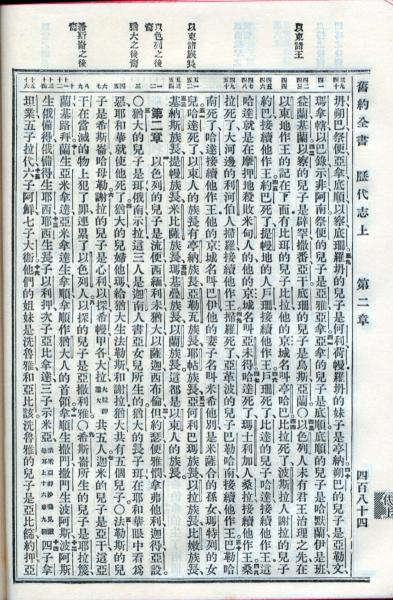 舊約全書 歷代志上 第二章 四百八十四
以東諸王
以東諸族長
以色列之後裔
猶大之後裔
珊朔巴益便亞拿底順以察底珊羅珊的兒子是何利荷幔羅珊的妹子是亭納朔巴的兒子是亞勒文
瑪拿轄以巴錄示非阿南祭便的兒子是亞雅亞拿亞拿的兒子是底順底順的兒子是哈默蘭伊是班
益蘭基蘭以察的兒子是辟罕撒番亞干底珊的兒子是烏斯亞蘭〇以色列人未有君王治理之先在
以東地作王的記在下面有比珥的兒子比拉他的京城名叫亭哈巴比拉死了波斯拉人謝拉的兒子
約巴接續他作王約巴死了提幔地的人戶珊接續他作王戶珊死了比達的兒子哈達接續他作王這
哈達就是在摩押地殺敗米甸人的他的京城名叫亞未得哈達死了瑪士利加人桑拉接續他作王桑
拉死了大河邊的利河伯人掃羅接續他作王掃羅死了亞革波的兒子巴勒哈南接續他作王巴勒哈
南死了哈達接續他作王他的京城名叫巴伊他的妻子名叫米希他別是米薩合的孫女瑪特列的女
兒哈達死了以東人的族長有亭納族長亞勒瓦族長耶帖族長亞何利巴瑪族長以拉族長比嫩族長
基納斯族長提幔族長米比薩族長瑪基疊族長以蘭族長這都是以東人的族長
第二章 以色列的兒子是流便西緬利未猶大以薩迦西布倫但約瑟便雅憫拿弗他利迦得亞設
〇猶大的兒子是珥俄南示拉這三人是迦南人書亞女兒所生的猶大的長子珥在耶和華眼中看為
惡耶和華就使他死了猶大的兒婦他瑪給猶大生法勒斯和謝拉猶大共有五個兒子〇法勒斯的兒
子是希斯崙哈母勒謝拉的兒子是心利以探希幔甲各大拉共五人迦米的兒子是亞干這亞
干在當滅的物上犯了罪連累了以色列人以探的兒子是亞撒利雅〇希斯崙所生的兒子是耶拉篾
蘭基路拜蘭生亞米拿達亞米拿達生拿順拿順作猶大人的首領拿順生撒門撒門生波阿斯波阿斯
生俄備得俄備得生耶西耶西生長子以利押次子亞比拿達三子示米亞四子拿
坦業五子拉代六子阿鮮七子大衛他們的姐妹是洗魯雅和亞比該洗魯雅的兒子是亞比篩約押亞